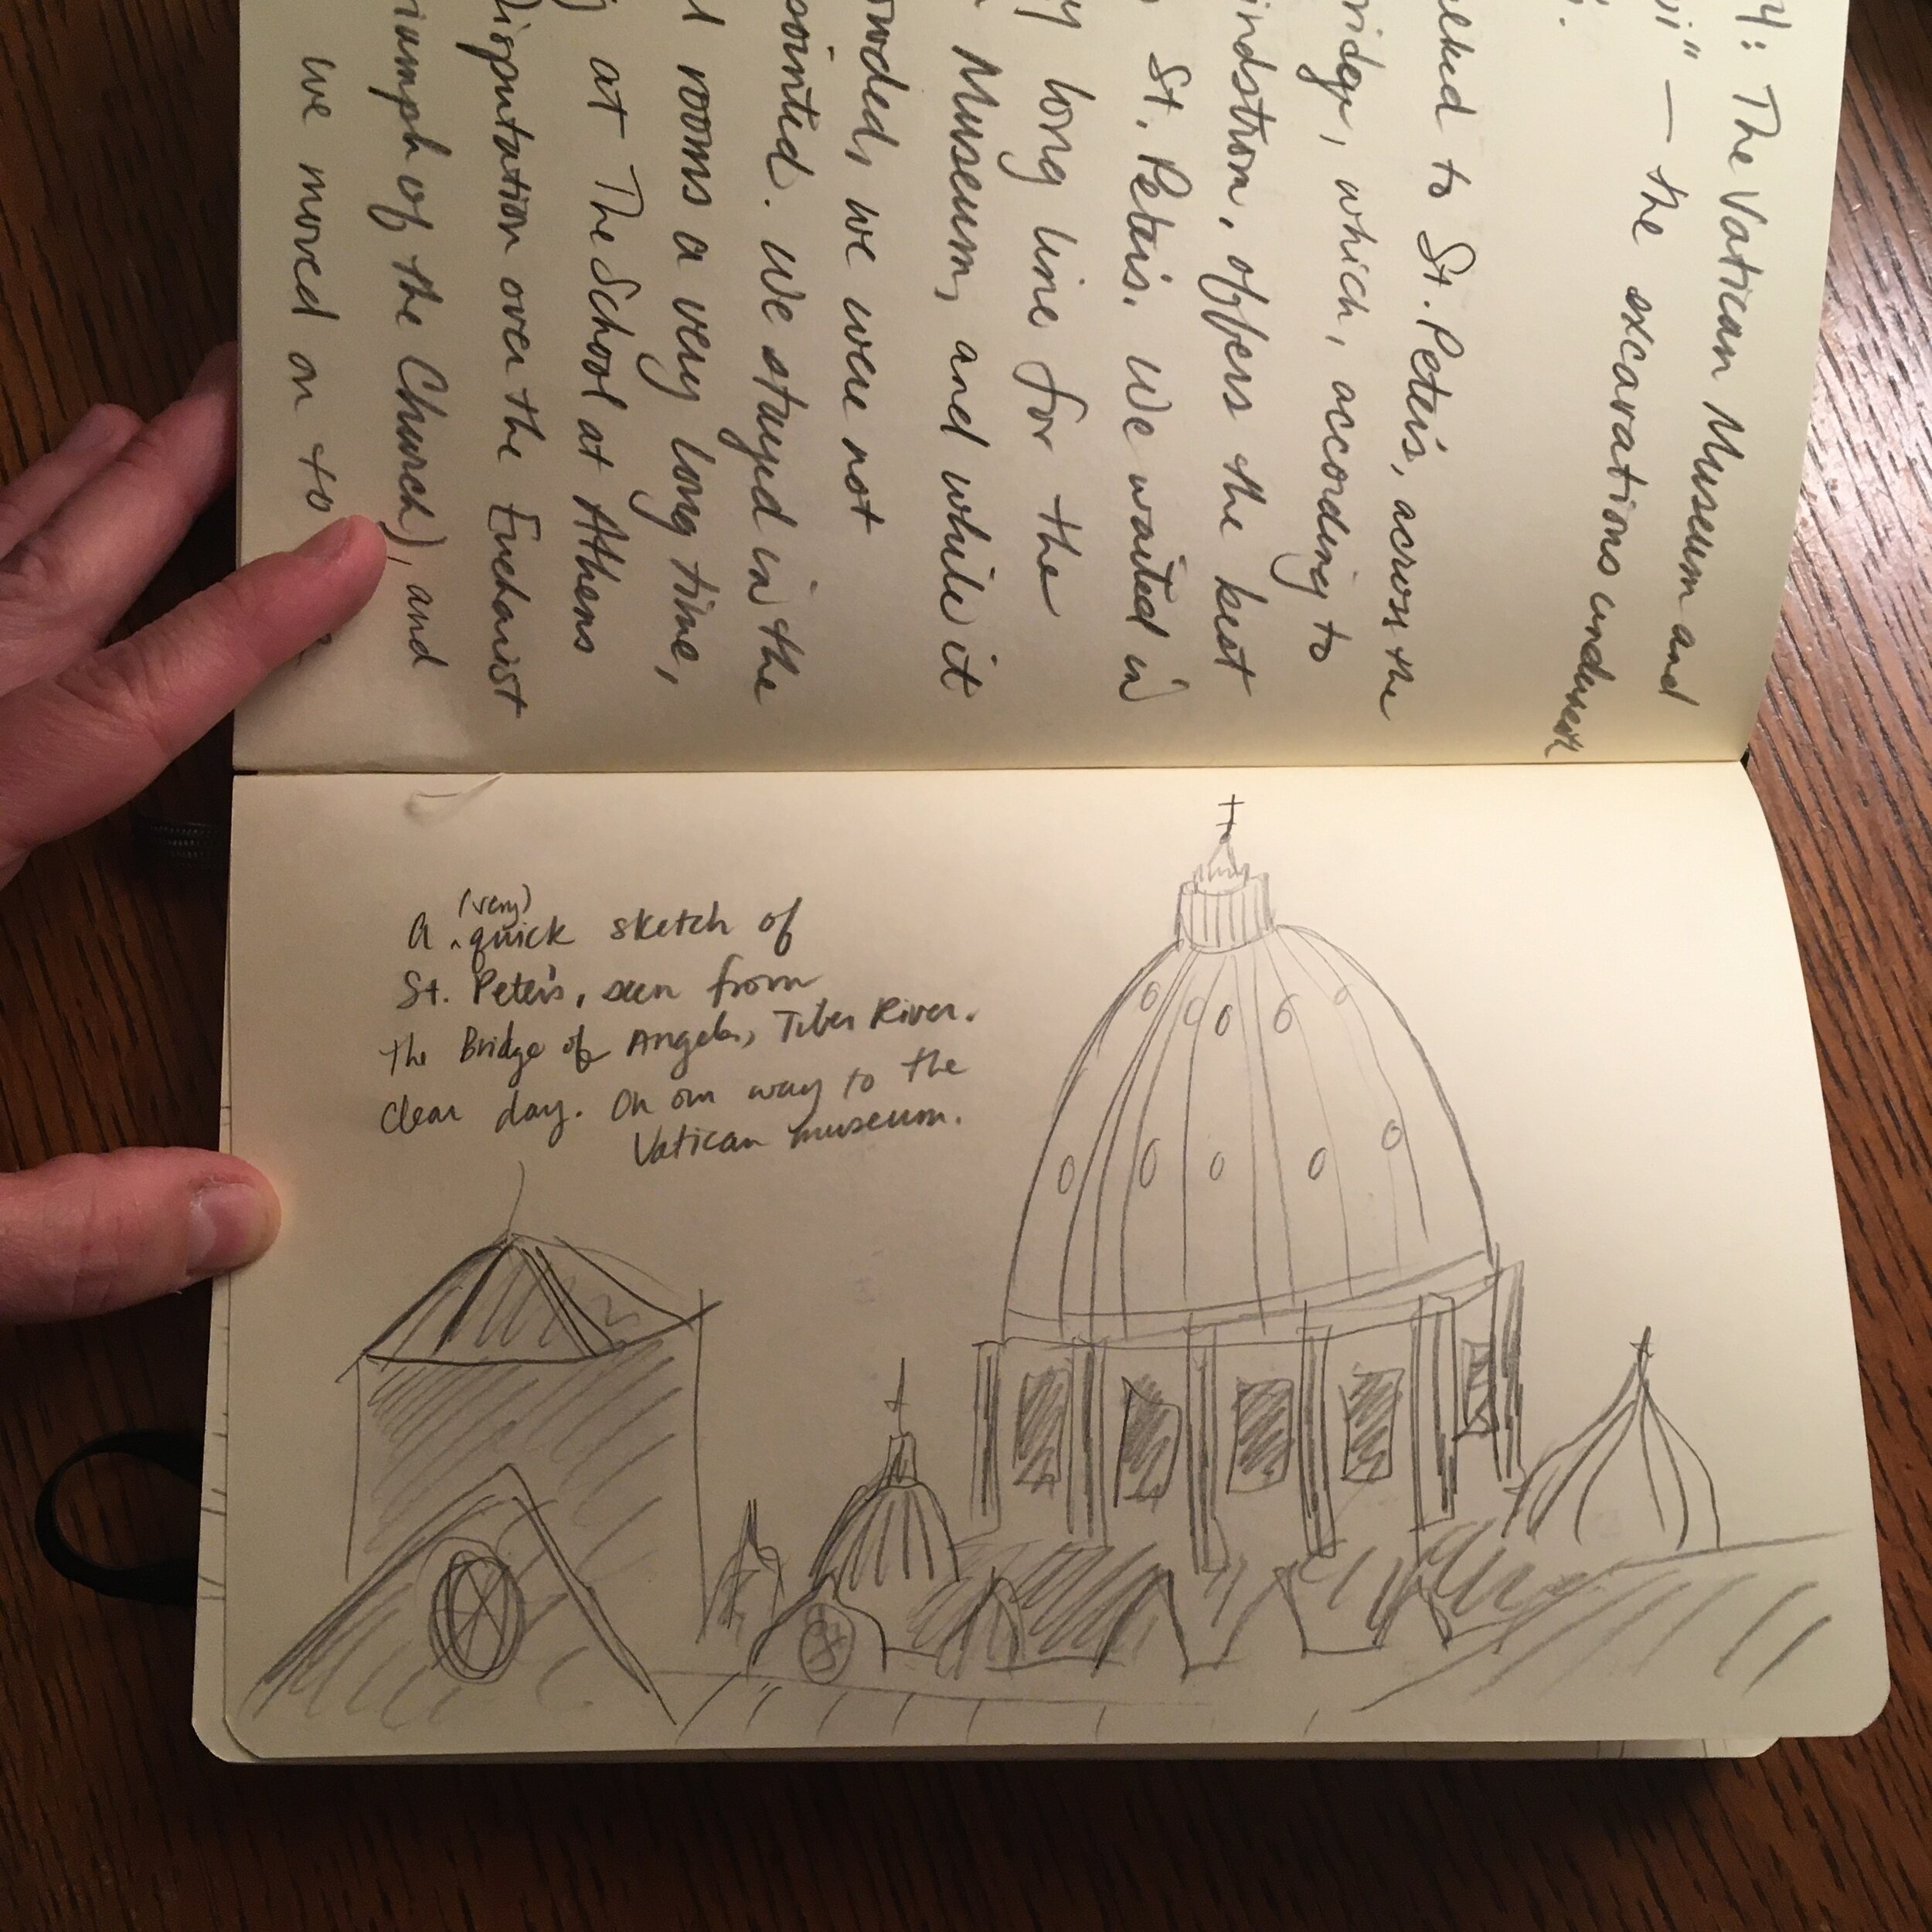 4: The Vatican Museum and
— the excavations underneath
to St. Peter's, across the
ridge, which, according to
indstrom, offers the best
St. Peter's. We waited in
long line for the
Museum, and while it
owded, we were not
pointed. We stayed in the
rooms a very long time,
at The School at Athens
Disputation over the Eucharist
riumph of the Church), and
we moved on to
A (very) quick sketch of
St. Peter's, seen from
the Bridge of Angels, Tiber River.
Clear day. On our way to the
Vatican museum.